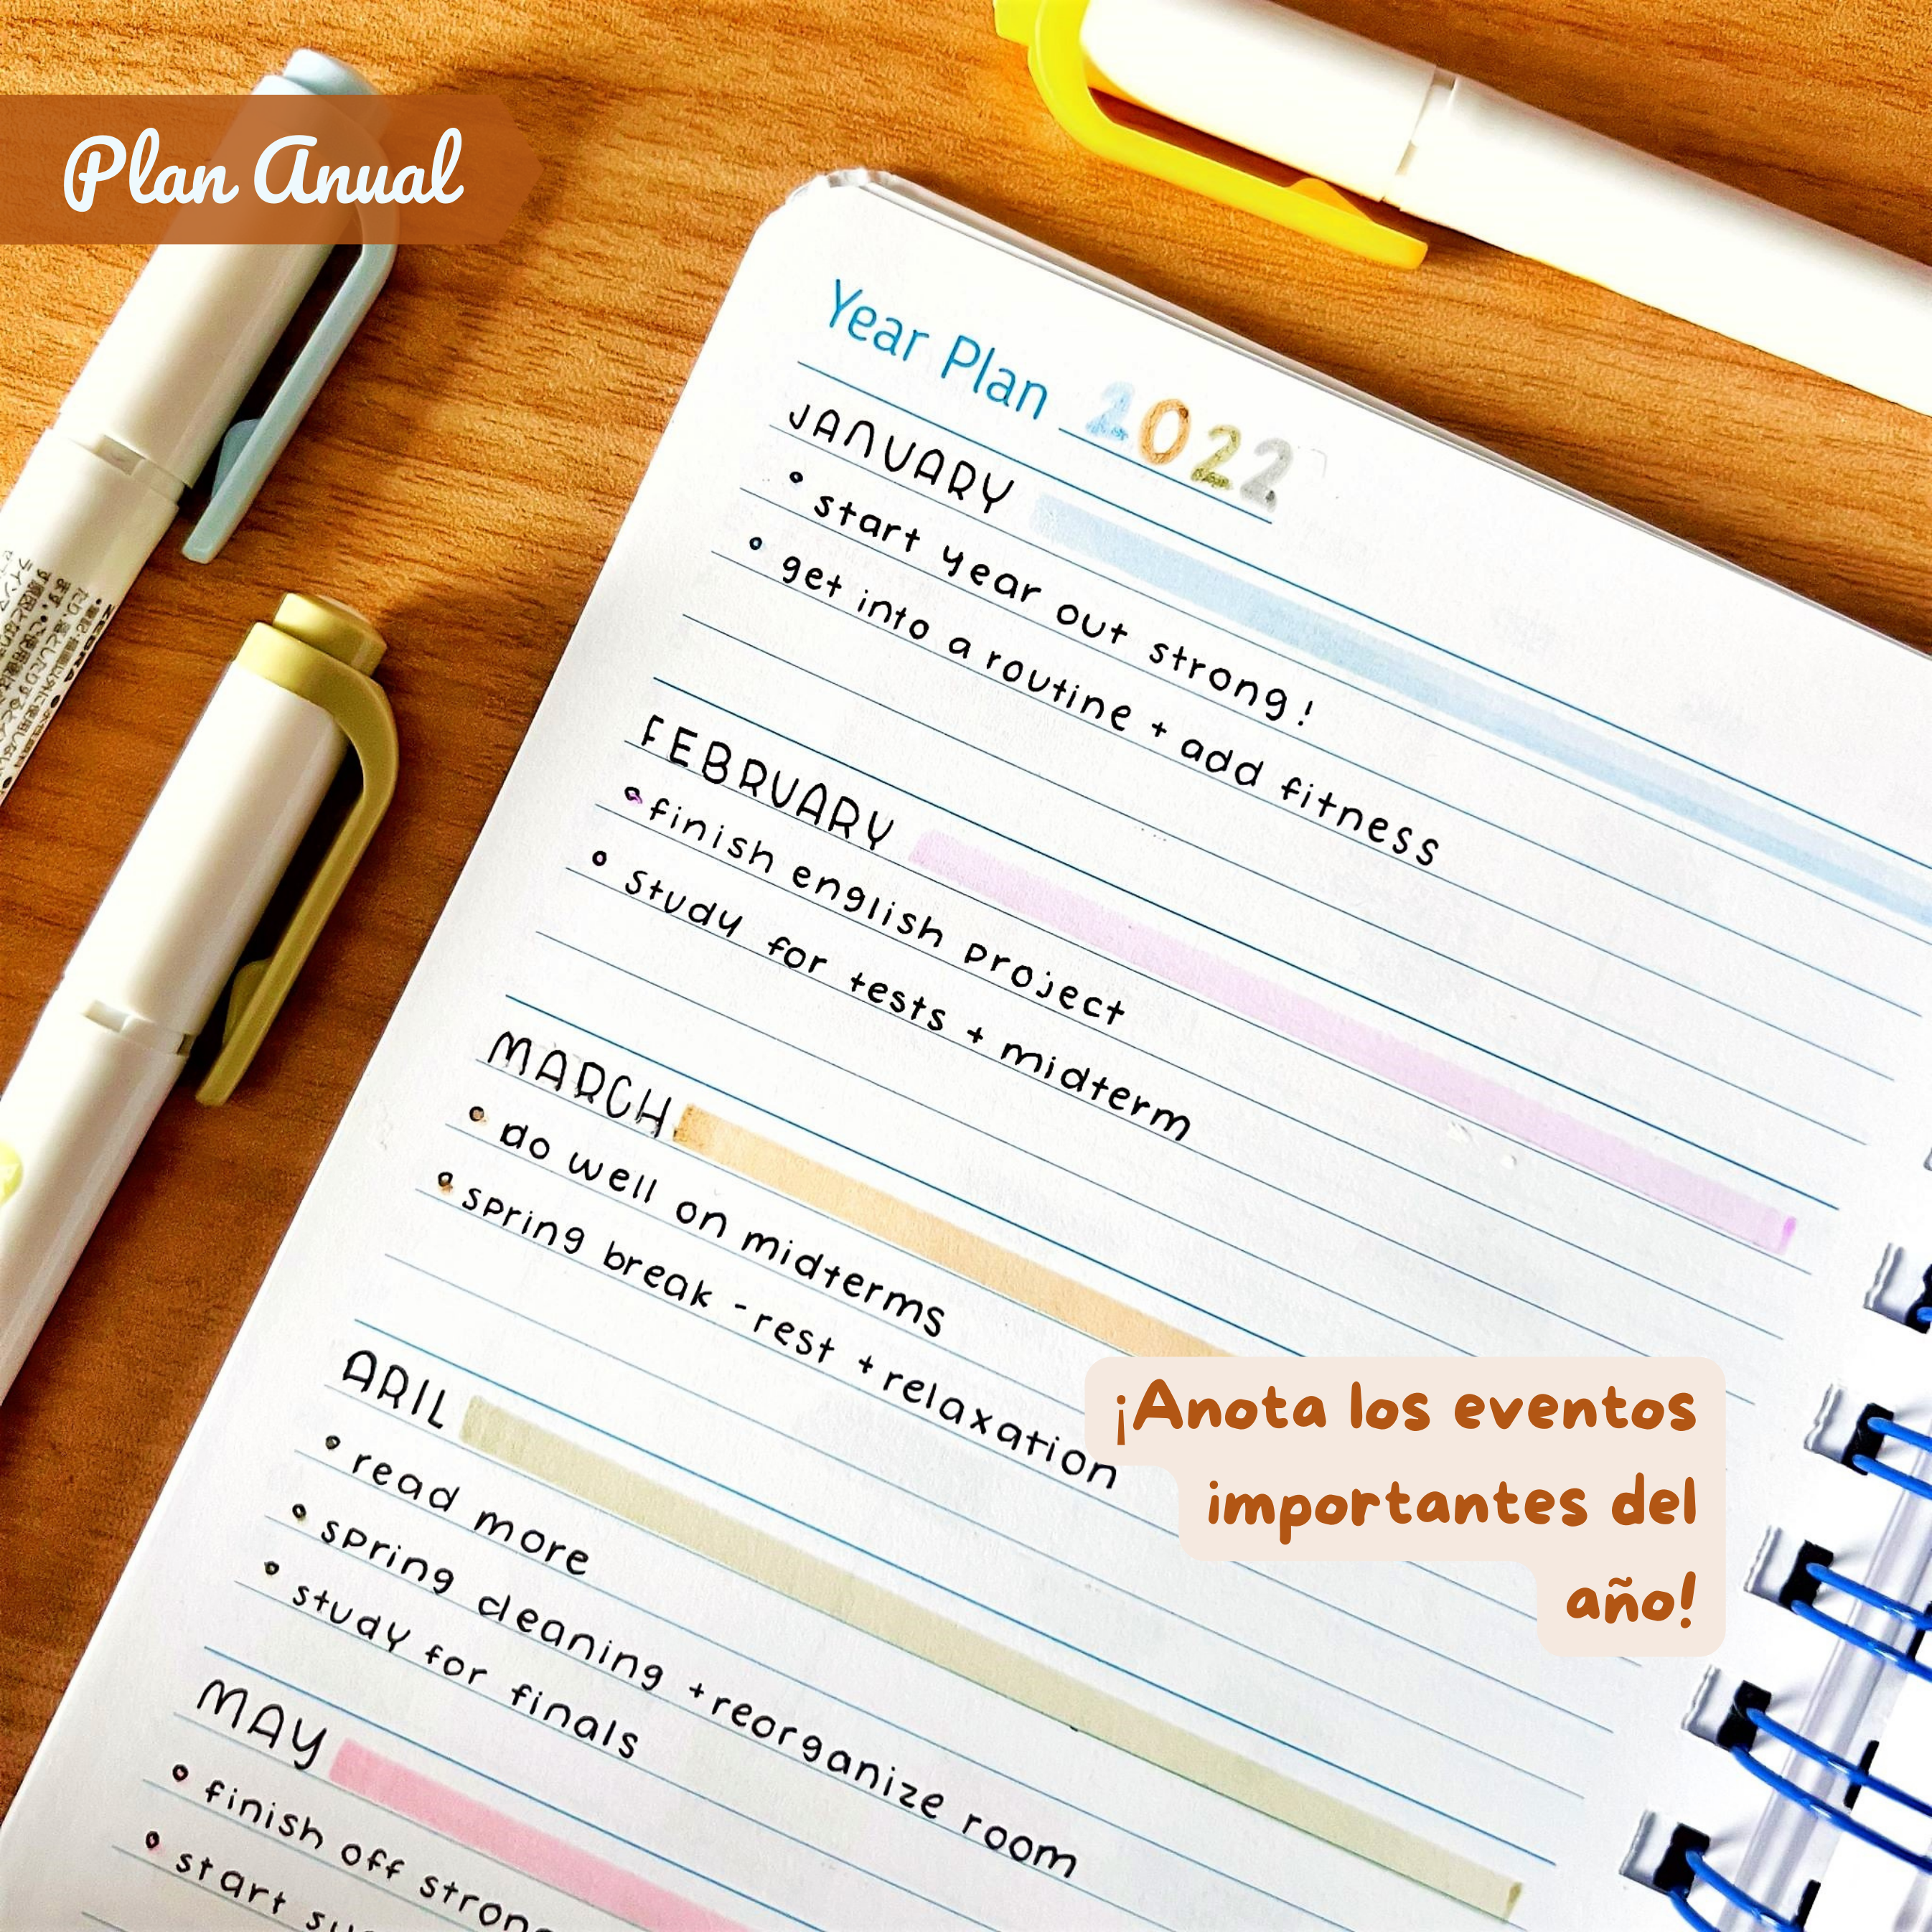 Plan Anual
Year Plan 2022
JANUARY
• start year out strong!
• get into a routine + add fitness
FEBRUARY
• finish english project
• study for tests + midterm
MARCH
• do well on midterms
• spring break - rest + relaxation
ARIL
• read more
• spring cleaning + reorganize room
• study for finals
MAY
• finish off
• start
¡Anota los eventos
importantes del
año!